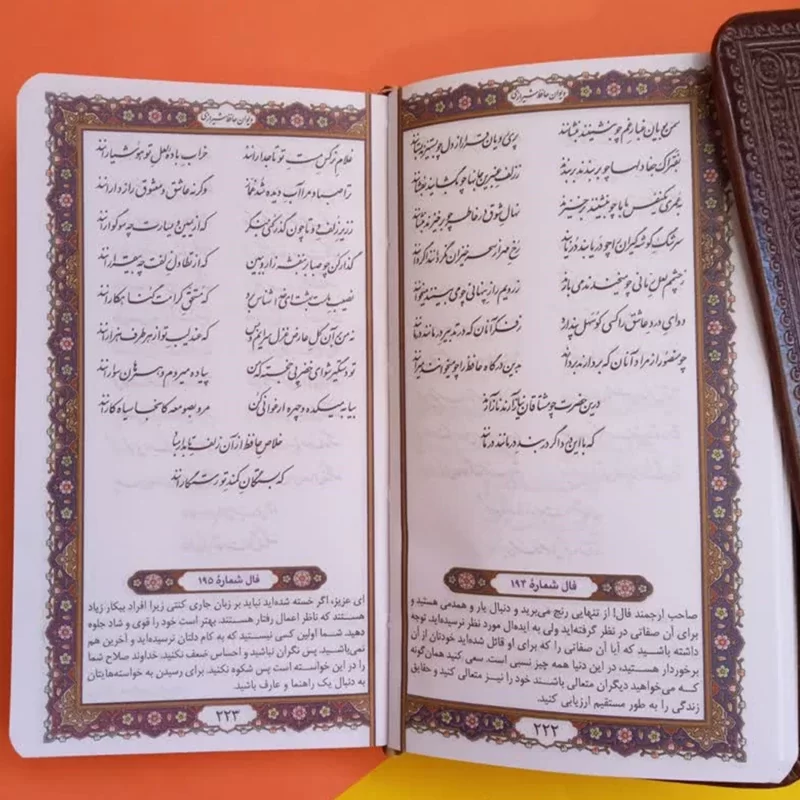 دیوان حافظ شیرازی
سمن بویان غبار غم چو بنشینند بنشانند پری رویان قرار از دل چو بستیزند بستانند
بفتراک جفا دلها چو بربندند بربندند ز زلف عنبرین جانها چو بگشایند بفشانند
بعمری یکنفس با ما چو بنشینند برخیزند نهال شوق در خاطر چو برخیزند بنشانند
سرشک گوشه گیران را چو دریابند دریابند رخ مهر از سحر خیزان نگردانند اگر دانند
ز چشمم لعل رمانی چو میخندند می بارند ز رویم راز پنهانی چو می بینند میخوانند
دوای درد عاشق را کسی کو سهل پندارد ز فکر آنان که در تدبیر درمانند درمانند
چو منصور از مراد آنان که بردارند بردارند بدین درگاه حافظ را چو میخوانند میرانند
درین حضرت چو مشتاقان نیاز آرند ناز آرند
که با این درد اگر دربند درمانند درمانند
فال شمارهٔ ۱۹۴
صاحب ارجمند فال! از تنهایی رنج می‌برید و دنبال یار و همدمی هستید و
برای آن صفاتی در نظر گرفته‌اید ولی به ایده‌آل مورد نظر نرسیده‌اید. توجه
داشته باشید که آیا آن صفاتی را که برای او قائل شده‌اید خودتان از آن
برخوردار هستید، در این دنیا همه چیز نسبی است. سعی کنید همان‌گونه
که می‌خواهید دیگران متعالی باشند خود را نیز متعالی کنید و حقایق
زندگی را به طور مستقیم ارزیابی کنید.
۲۲۲
دیوان حافظ شیرازی
غلام نرگس مست تو تاجدارانند خراب بادهٔ لعل تو هوشیارانند
ترا صبا و مرا آب دیده شد غماز وگرنه عاشق و معشوق رازدارانند
ز زیر زلف دوتا چون گذر کنی بنگر که از یمین و یسارت چه سوگوارانند
گذار کن چو صبا بر بنفشه زار و ببین که از تطاول زلفت چه بیقرارانند
نصیب ماست بهشت ای خدا شناس برو که مستحق کرامت گناهکارانند
نه من بر آن گل عارض غزل سرایم و بس که عندلیب تو از هر طرف هزارانند
تو دستگیر شو ای خضر پی خجسته که من پیاده میروم و همرهان سوارانند
بیا به میکده و چهره ارغوانی کن مرو بصومعه کانجا سیاه کارانند
خلاص حافظ از آن زلف تابدار مباد
که بستگان کمند تو رستگارانند
فال شمارهٔ ۱۹۵
ای عزیز، اگر خسته شده‌اید نباید بر زبان جاری کنی زیرا افراد بیکار زیاد
هستند که ناظر اعمال رفتار هستند. بهتر است خود را قوی و شاد جلوه
دهید. شما اولین کسی نیستید که به کام دلتان نرسیده‌اید و آخرین هم
نمی‌باشید. پس نگران نباشید و احساس ضعف نکنید. خداوند صلاح شما
را در این خواسته است پس شکوه نکنید. برای رسیدن به خواسته‌هایتان
به دنبال یک راهنما و عارف باشید.
۲۲۳